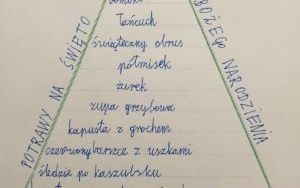 POTRAWY NA ŚWIĘTO
BOŻEGO NARODZENIA
łańcuch
świąteczny obrus
półmisek
żurek
zupa grzybowa
kapusta z grochem
czerwony barszcz z uszkami
śledzie po kaszubsku